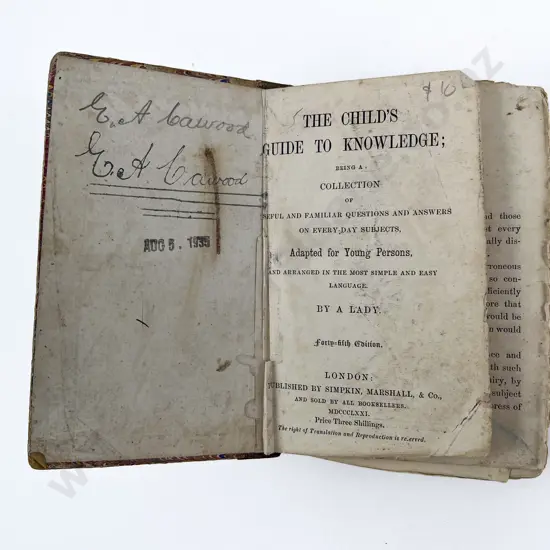 E. A Cawood
E. A. Cawood
AUG 5. 1935
$10
THE CHILD'S
GUIDE TO KNOWLEDGE;
BEING A
COLLECTION
OF
USEFUL AND FAMILIAR QUESTIONS AND ANSWERS
ON EVERY-DAY SUBJECTS,
Adapted for Young Persons,
AND ARRANGED IN THE MOST SIMPLE AND EASY
LANGUAGE.
BY A LADY.
Forty-fifth Edition.
LONDON:
PUBLISHED BY SIMPKIN, MARSHALL, & Co.,
AND SOLD BY ALL BOOKSELLERS.
MDCCCLXXI.
Price Three Shillings.
The right of Translation and Reproduction is reserved.
those
every
ally dis-
so con-
ficiently
ore that
would be
would
and
th such
iry, by
subject
ress of